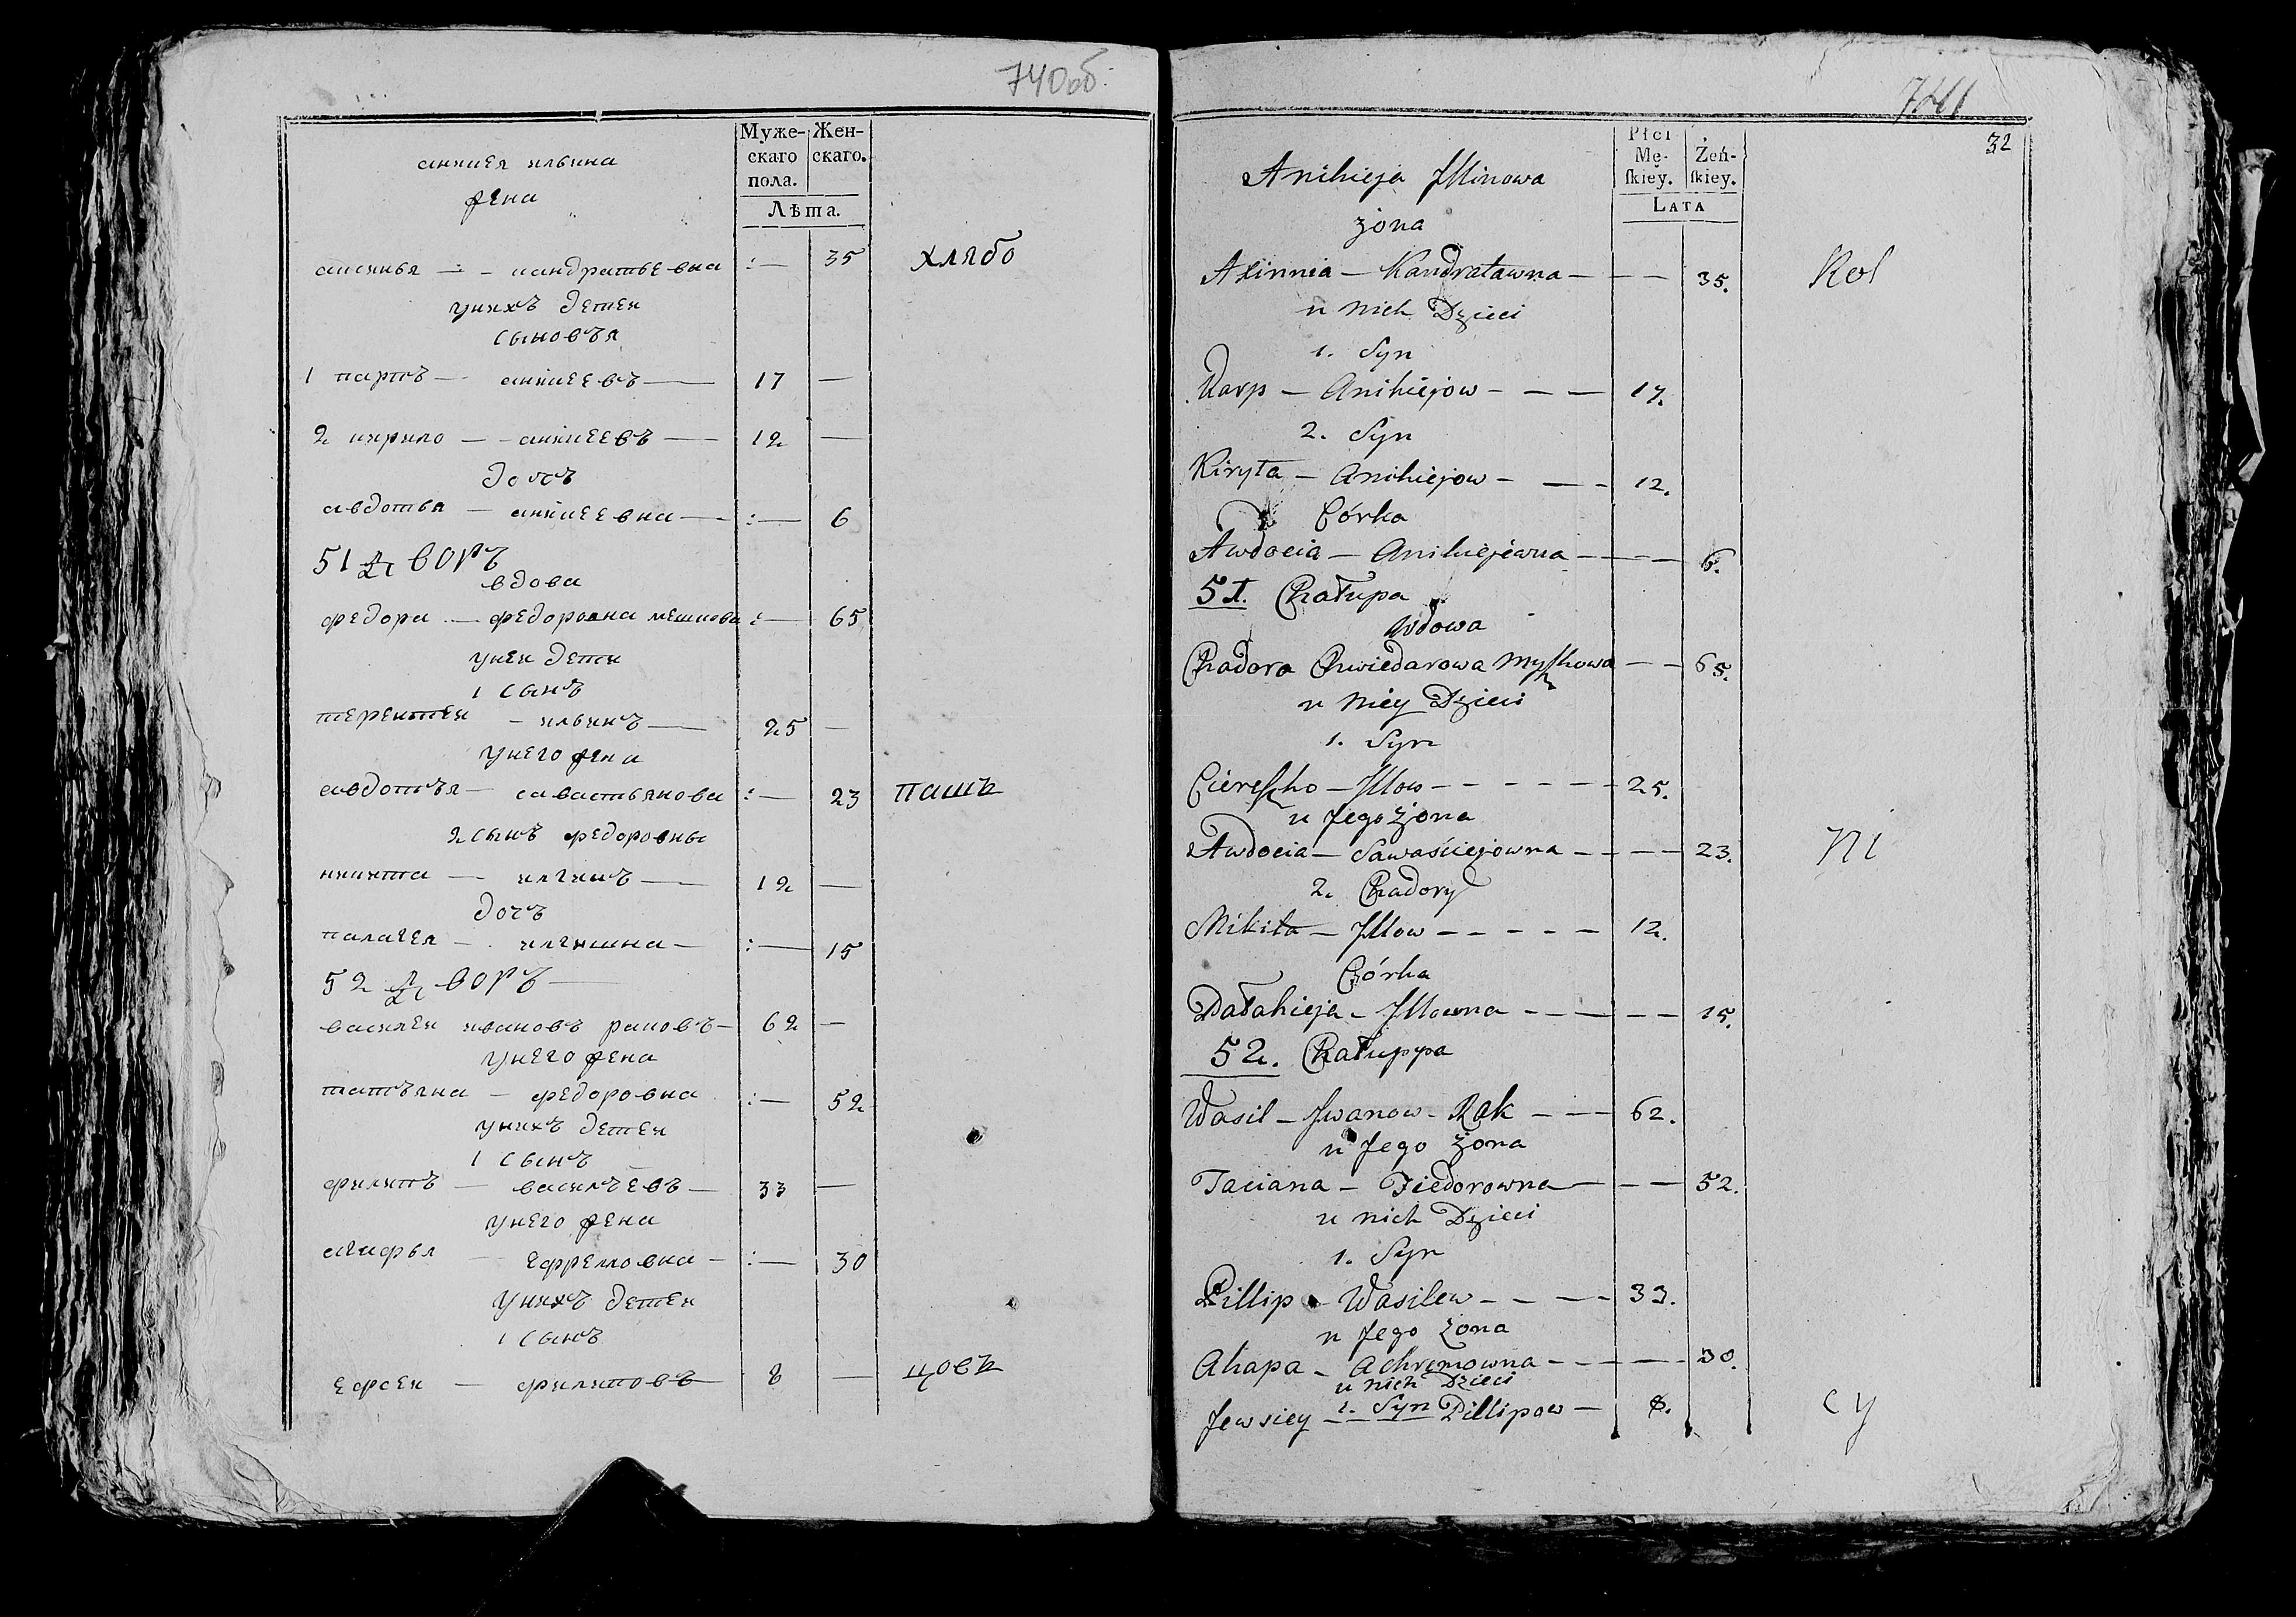 740об.
Муже- Жен-
скаго скаго.
пола.
Лѣта.
аникея ильина
жена
аксинья — кандратьевна :— 35 хлѣбо
унихъ детеи
сыновъя
1 карпъ — аникеевъ — 17 —
2 кирило — аникеевъ — 12 —
дочь
авдотья — аникеевна — :— 6
51 дворъ
вдова
федора — федоровна мешкова :— 65
унеи дети
1 сынъ
терентеи — ильинъ — 25 —
унего жена
авдотъя — савастьянова :— 23 пашъ
2 сынъ федоровны
никита — илъинъ — 12 —
дочъ
палагея — илъинишна — :— 15
52 дворъ —
василеи ивановъ раковъ — 62 —
унего жена
татъяна — федоровна :— 52
унихъ детеи
1 сынъ
филипъ — василъевъ — 33 —
унего жена
агафья — ефремовна — :— 30
унихъ детеи
1 сынъ
ефсеи — филиповъ 8 — цовъ
741
32
Płci
Mę- Żeń-
ſkiey. ſkiey.
LATA
Anihieja Jllinowa
żona
Axinnia — Kandratawna — — — 35. Rol
u nich Dzieci
1. Syn
Karp — Anihiejow - — — 17.
2. Syn
Kiryła — Anihiejow - — - 12.
Córka
Awdocia — Anihiejewna - — — 6.
51. Chałupa
Wdowa
Chadora Chwiedarowa Myſzkowa — — 65.
u Niey Dzieci
1. Syn
Ciereſzko — Jllow - - - - - 25.
u Jego żona
Awdocia — Sawaściejowna - - — — 23. Ni
2. Chadory
Mikita — Jllow - - - - — 12.
Córka
Pałahieja - Jllowna - - — — — 15.
52. Chałuppa
Wasil — Jwanow - Rak — - — 62.
u Jego żona
Taciana — Fiedorowna — - — 52.
u nich Dzieci
1. Syn
Fillip - Wasilew - - - — 33.
u Jego żona
Ahapa - Achremowna - - — - — 30.
u nich Dzieci
1. Syn
Jewsiey — Fillipow — 8. cy